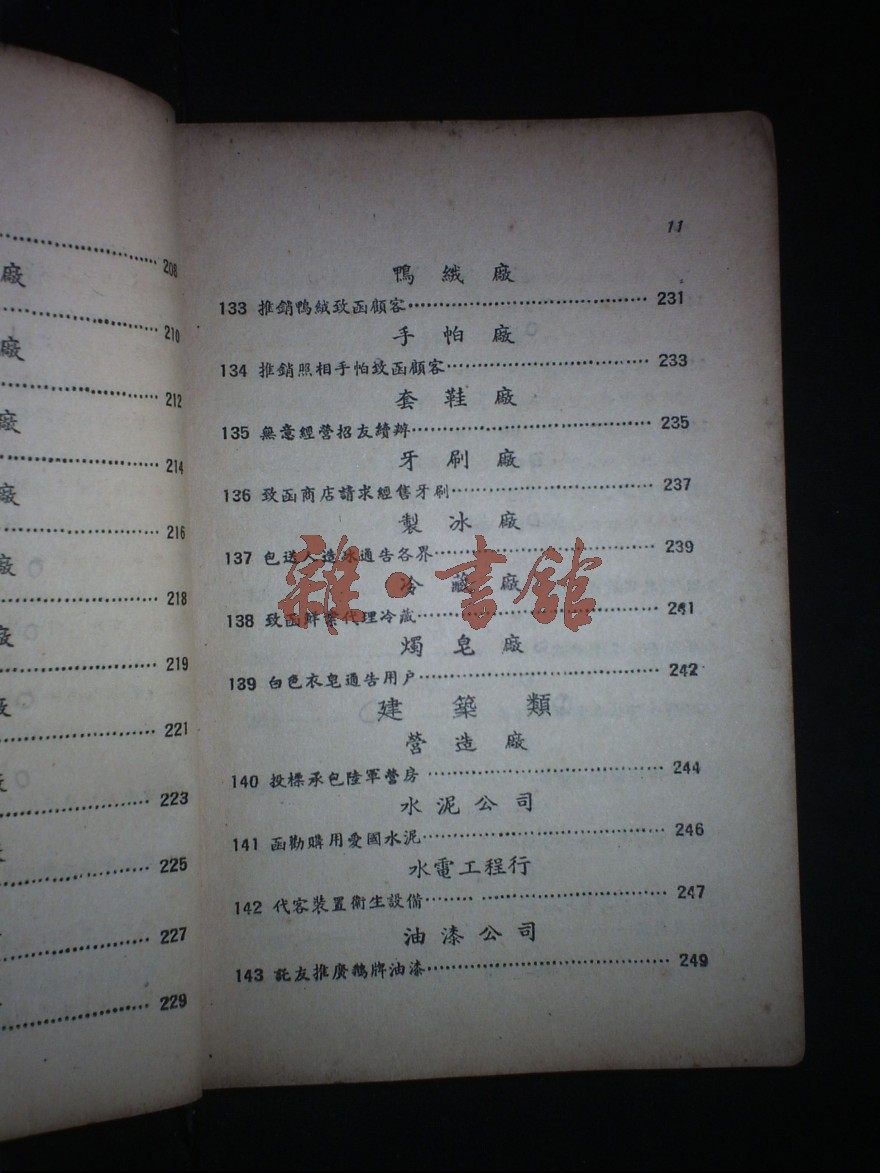 208
廠
210
廠
212
廠
214
廠
216
廠
218
廠
219
廠
221
廠
223
225
227
229
11
鴨絨廠
133 推銷鴨絨致函顧客 231
手帕廠
134 推銷照相手帕致函顧客 233
套鞋廠
135 無意經營招友續辦 235
牙刷廠
136 致函商店請求經售牙刷 237
製冰廠
137 包送人造冰通告各界 239
冷藏廠
138 致函鮮業代理冷藏 241
燭皂廠
139 白色衣皂通告用户 242
建築類
營造廠
140 投標承包陸軍營房 244
水泥公司
141 函勸購用愛國水泥 246
水電工程行
142 代客裝置衞生設備 247
油漆公司
143 託友推廣鵝牌油漆 249
雜·書館